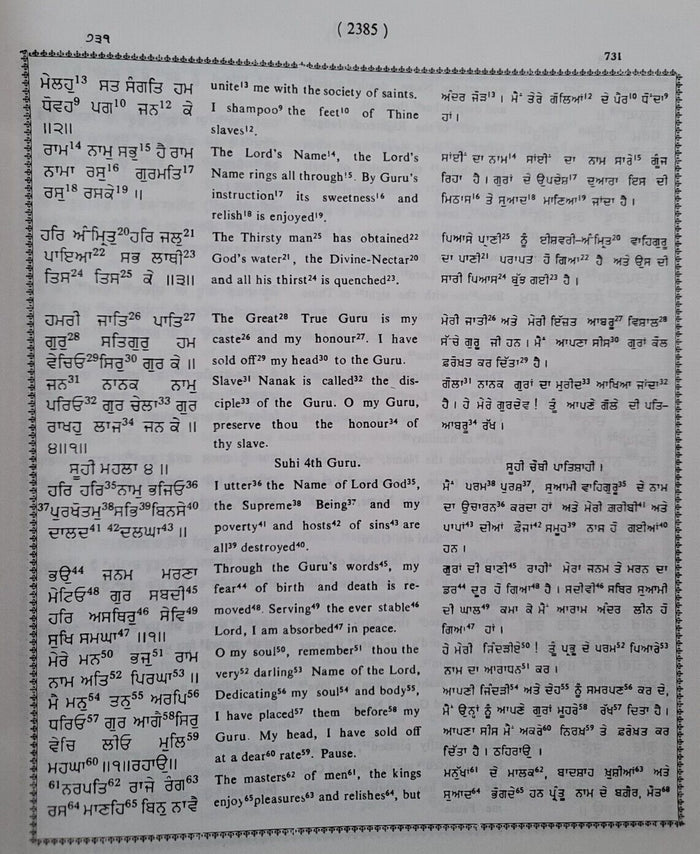 ੭੩੧
( 2385 )
731
ਮੇਲਹੁ¹³ ਸਤ ਸੰਗਤਿ ਹਮ
ਧੋਵਹ⁹ ਪਗ¹⁰ ਜਨ¹² ਕੇ
॥੨॥
ਰਾਮ¹⁴ ਨਾਮੁ ਸਭੁ¹⁵ ਹੈ ਰਾਮ
ਨਾਮਾ ਰਸੁ¹⁶ ਗੁਰਮਤਿ¹⁷
ਰਸੁ¹⁸ ਰਸਕੇ¹⁹ ॥
ਹਰਿ ਅੰਮ੍ਰਿਤੁ²⁰ਹਰਿ ਜਲੁ²¹
ਪਾਇਆ²² ਸਭ ਲਾਥੀ²³
ਤਿਸ²⁴ ਤਿਸ²⁵ ਕੇ ॥੩॥
ਹਮਰੀ ਜਾਤਿ²⁶ ਪਾਤਿ²⁷
ਗੁਰੁ²⁸ ਸਤਿਗੁਰੁ ਹਮ
ਵੇਚਿਓ²⁹ਸਿਰੁ³⁰ ਗੁਰ ਕੇ ॥
ਜਨ³¹ ਨਾਨਕ ਨਾਮੁ
ਪਰਿਓ³² ਗੁਰ ਚੇਲਾ³³ ਗੁਰ
ਰਾਖਹੁ ਲਾਜ³⁴ ਜਨ ਕੇ ॥
੪॥੧॥
ਸੂਹੀ ਮਹਲਾ ੪ ॥
ਹਰਿ ਹਰਿ³⁵ਨਾਮੁ ਭਜਿਓ³⁶
³⁷ਪੁਰਖੋਤਮੁ³⁸ਸਭਿ³⁹ਬਿਨਸੇ⁴⁰
ਦਾਲਦ⁴¹ ⁴²ਦਲਘਾ⁴³ ॥
ਭਉ⁴⁴ ਜਨਮ ਮਰਣਾ
ਮੇਟਿਓ⁴⁸ ਗੁਰ ਸਬਦੀ⁴⁵
ਹਰਿ ਅਸਥਿਰੁ⁴⁶ ਸੇਵਿ⁴⁹
ਸੁਖਿ ਸਮਘਾ⁴⁷ ॥੧॥
ਮੇਰੇ ਮਨ⁵⁰ ਭਜੁ⁵¹ ਰਾਮ
ਨਾਮ ਅਤਿ⁵² ਪਿਰਘਾ⁵³ ॥
ਮੈ ਮਨੁ⁵⁴ ਤਨੁ⁵⁵ ਅਰਪਿ⁵⁶
ਧਰਿਓ⁵⁷ ਗੁਰ ਆਗੈ⁵⁸ਸਿਰੁ
ਵੇਚਿ ਲੀਓ ਮੁਲਿ⁵⁹
ਮਹਘਾ⁶⁰ ॥੧॥ਰਹਾਉ॥
⁶¹ਨਰਪਤਿ⁶² ਰਾਜੇ ਰੰਗ⁶³
ਰਸ⁶⁴ ਮਾਣਹਿ⁶⁵ ਬਿਨੁ ਨਾਵੈ
unite¹³ me with the society of saints.
I shampoo⁹ the feet¹⁰ of Thine
slaves¹².
The Lord's Name¹⁴, the Lord's
Name rings all through¹⁵. By Guru's
instruction¹⁷ its sweetness¹⁶ and
relish¹⁸ is enjoyed¹⁹.
The Thirsty man²⁵ has obtained²²
God's water²¹, the Divine-Nectar²⁰
and all his thirst²⁴ is quenched²³.
The Great²⁸ True Guru is my
caste²⁶ and my honour²⁷. I have
sold off²⁹ my head³⁰ to the Guru.
Slave³¹ Nanak is called³² the dis-
ciple³³ of the Guru. O my Guru,
preserve thou the honour³⁴ of
thy slave.
Suhi 4th Guru.
I utter³⁶ the Name of Lord God³⁵,
the Supreme³⁸ Being³⁷ and my
poverty⁴¹ and hosts⁴² of sins⁴³ are
all³⁹ destroyed⁴⁰.
Through the Guru's words⁴⁵, my
fear⁴⁴ of birth and death is re-
moved⁴⁸. Serving⁴⁹ the ever stable⁴⁶
Lord, I am absorbed⁴⁷ in peace.
O my soul⁵⁰, remember⁵¹ thou the
very⁵² darling⁵³ Name of the Lord,
Dedicating⁵⁶ my soul⁵⁴ and body⁵⁵,
I have placed⁵⁷ them before⁵⁸ my
Guru. My head, I have sold off
at a dear⁶⁰ rate⁵⁹. Pause.
The masters⁶² of men⁶¹, the kings
enjoy⁶⁵pleasures⁶³ and relishes⁶⁴, but
ਅੰਦਰ ਜੋੜ¹³ । ਮੈਂ ਤੇਰੇ ਗੋਲਿਆਂ¹² ਦੇ ਪੈਰ¹⁰ ਧੋਂਦਾ⁹
ਹਾਂ ।
ਸਾਂਈਂ ਦਾ ਨਾਮ¹⁴ ਸਾਂਈਂ ਦਾ ਨਾਮ ਸਾਰੇ¹⁵ ਗੂੰਜ
ਰਿਹਾ ਹੈ । ਗੁਰਾਂ ਦੇ ਉਪਦੇਸ਼¹⁷ ਦੁਆਰਾ ਇਸ ਦੀ
ਮਿਠਾਸ¹⁶ ਤੇ ਸੁਆਦ¹⁸ ਮਾਣਿਆ¹⁹ ਜਾਂਦਾ ਹੈ ।
ਪਿਆਸੇ ਪ੍ਰਾਣੀ²⁵ ਨੂੰ ਈਸ਼ਵਰੀ-ਅੰਮ੍ਰਿਤ²⁰ ਵਾਹਿਗੁਰੂ
ਦਾ ਪਾਣੀ²¹ ਪਰਾਪਤ ਹੋ ਗਿਆ²² ਹੈ ਅਤੇ ਉਸ ਦੀ
ਸਾਰੀ ਪਿਆਸ²⁴ ਬੁੱਝ ਗਈ²³ ਹੈ ।
ਮੇਰੀ ਜਾਤੀ²⁶ ਅਤੇ ਮੇਰੀ ਇੱਜ਼ਤ ਆਬਰੂ²⁷ ਵਿਸ਼ਾਲ²⁸
ਸੱਚੇ ਗੁਰੂ ਜੀ ਹਨ । ਮੈਂ ਆਪਣਾ ਸੀਸ³⁰ ਗੁਰਾਂ ਕੋਲ
ਫ਼ਰੋਖ਼ਤ ਕਰ ਦਿੱਤਾ²⁹ ਹੈ ।
ਗੋਲਾ³¹ ਨਾਨਕ ਗੁਰਾਂ ਦਾ ਮੁਰੀਦ³³ ਆਖਿਆ ਜਾਂਦਾ³²
ਹੈ । ਹੇ ਮੇਰੇ ਗੁਰਦੇਵ ! ਤੂੰ ਆਪਣੇ ਗੋਲੇ ਦੀ ਪਤਿ-
ਆਬਰੂ³⁴ ਰੱਖ ।
ਸੂਹੀ ਚੌਥੀ ਪਾਤਿਸ਼ਾਹੀ ।
ਮੈਂ ਪਰਮ³⁸ ਪੁਰਸ਼³⁷, ਸੁਆਮੀ ਵਾਹਿਗੁਰੂ³⁵ ਦੇ ਨਾਮ
ਦਾ ਉਚਾਰਨ³⁶ ਕਰਦਾ ਹਾਂ ਅਤੇ ਮੇਰੀ ਗਰੀਬੀ⁴¹ ਅਤੇ
ਪਾਪਾਂ⁴³ ਦੀਆਂ ਫ਼ੌਜਾਂ⁴² ਸਮੂਹ³⁹ ਨਾਸ ਹੋ ਗਈਆਂ⁴⁰
ਹਨ ।
ਗੁਰਾਂ ਦੀ ਬਾਣੀ⁴⁵ ਰਾਹੀਂ ਮੇਰਾ ਜਨਮ ਤੇ ਮਰਨ ਦਾ
ਡਰ⁴⁴ ਦੂਰ ਹੋ ਗਿਆ⁴⁸ ਹੈ । ਸਦੀਵੀ⁴⁶ ਸਥਿਰ ਸੁਆਮੀ
ਦੀ ਘਾਲ⁴⁹ ਕਮਾ ਕੇ ਮੈਂ ਆਰਾਮ ਅੰਦਰ ਲੀਨ ਹੋ
ਗਿਆ⁴⁷ ਹਾਂ ।
ਹੇ ਮੇਰੀ ਜਿੰਦੜੀਏ⁵⁰ ! ਤੂੰ ਪ੍ਰਭੂ ਦੇ ਪਰਮ⁵² ਪਿਆਰੇ⁵³
ਨਾਮ ਦਾ ਆਰਾਧਨ⁵¹ ਕਰ ।
ਆਪਣੀ ਜਿੰਦੜੀ⁵⁴ ਅਤੇ ਦੇਹ⁵⁵ ਨੂੰ ਸਮਰਪਣ⁵⁶ ਕਰ ਦੇ,
ਮੈਂ ਉਨ੍ਹਾਂ ਨੂੰ ਆਪਣੇ ਗੁਰਾਂ ਮੂਹਰੇ⁵⁸ ਰੱਖ⁵⁷ ਦਿਤਾ ਹੈ ।
ਆਪਣਾ ਸੀਸ ਮੈਂ ਅਕਰੇ⁶⁰ ਨਿਰਖ⁵⁹ ਤੇ ਫ਼ਰੋਖ਼ਤ ਕਰ
ਦਿੱਤਾ ਹੈ । ਠਹਿਰਾਉ ।
ਮਨੁੱਖਾਂ⁶¹ ਦੇ ਮਾਲਕ⁶², ਬਾਦਸ਼ਾਹ ਖ਼ੁਸ਼ੀਆਂ⁶³ ਅਤੇ
ਸੁਆਦ⁶⁴ ਭੋਗਦੇ⁶⁵ ਹਨ ਪ੍ਰੰਤੂ ਨਾਮ ਦੇ ਬਗੈਰ, ਮੌਤ⁶⁸